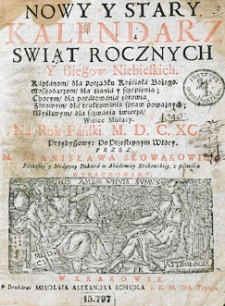 NOWY Y STARY
KALENDARZ
SWIĄT ROCZNYCH
Y Biegow Niebieskich.
Kapłanom/ dla porządku Kościoła Bożego.
Gospodarzom/ dla siania y szczepienia;
Chorym/ dla poratowania zdrowia
Zdrowym/ dla traktowania spraw poważnych;
Myśliwym/ dla szczwania zwierza/
Wielce służący.
Na Rok Pański M. D. C. XC.
Przybyszowy: Po Przestępnym Wtory.
PRZEZ
M. STANISŁAWA SŁOWAKOWICA
Filozofiey y Medycyny Doktora w Akademiey Krakowskiey, z pilnością
WYRACHOWANY.
ASTROLOGIA
W KRAKOWIE
W Drukarni MIKOŁAIA ALEXANDRA SCHEDLA I. K. M. Ord. Typogr.
15.797